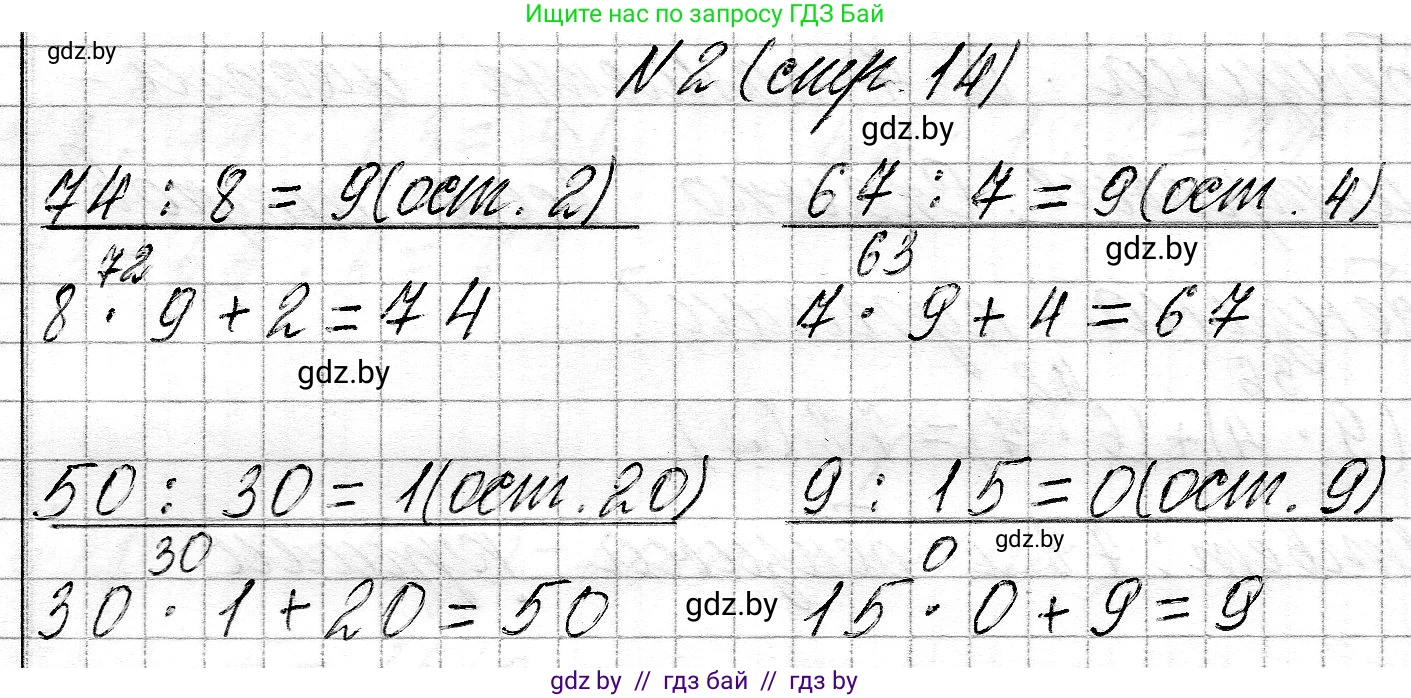 Ищите нас по запросу ГДЗ Бай
gdz.by
N2 (стр. 14)
gdz.by
74 : 8 = 9(ост. 2) 67 : 7 = 9(ост. 4)
gdz.by
72 63
8 · 9 + 2 = 74 7 · 9 + 4 = 67
gdz.by
50 : 30 = 1(ост. 20) 9 : 15 = 0(ост. 9)
gdz.by
30 0
30 · 1 + 20 = 50 gdz.by 15 · 0 + 9 = 9
gdz.by // гдз бай // гдз by